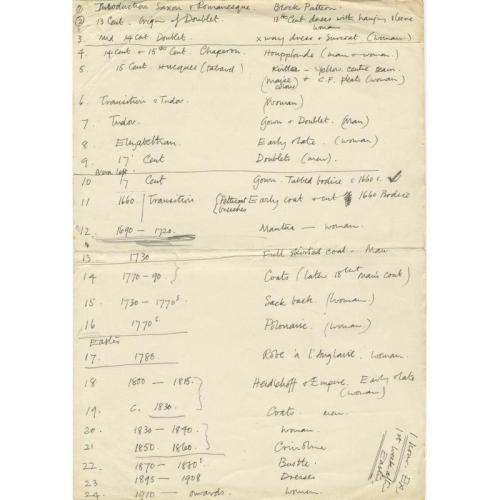 1 Introduction Saxon & Romanesque. Block Pattern.
2 13 Cent. Origin of Doublet. 13th Cent dress with hanging sleeve woman
3 Mid 14 Cat Doublet. x way dress & Surcoat (woman)
4. 14 Cent & 15th Cent. Chaperon. Houpplande (man & woman)
5. 15 Cent. Hucques (tabard) Kirtle — yellow centre seam.
& C.F. pleats (woman)
6. Transition & Tudor. (Woman)
7. Tudor. Gown & Doublet. (Man)
8 Elizabethan. Early & late. (woman)
9. 17 Cent Doublets (men)
10 17 Cent Gown. Tabbed bodice c 1660s. ✓
11 1660 Transition {Petticoat breeches Early coat & cut 1660 Bodice
12. 1690 — 1720. Mantua — woman.
13 1730 Full skirted coat. Man
14 1770 – 90. Coats (later 18 Cent Man's coat)
15. 1730 – 1770s Sack back. (Woman)
16 1770s. Polonaise. (woman)
Easter
17. 1780. Robe à l'Anglaise. Woman.
18 1800 — 1815. Heideloff & Empire. Early & late (woman)
19. C. 1830. Coats. men.
20. 1830 — 1840. Woman.
21 1850. 1860. Crinoline
22. 1870 — 1880s. Bustle.
23 1895 — 1908 Dresses
24. 1910 — onwards. Women.